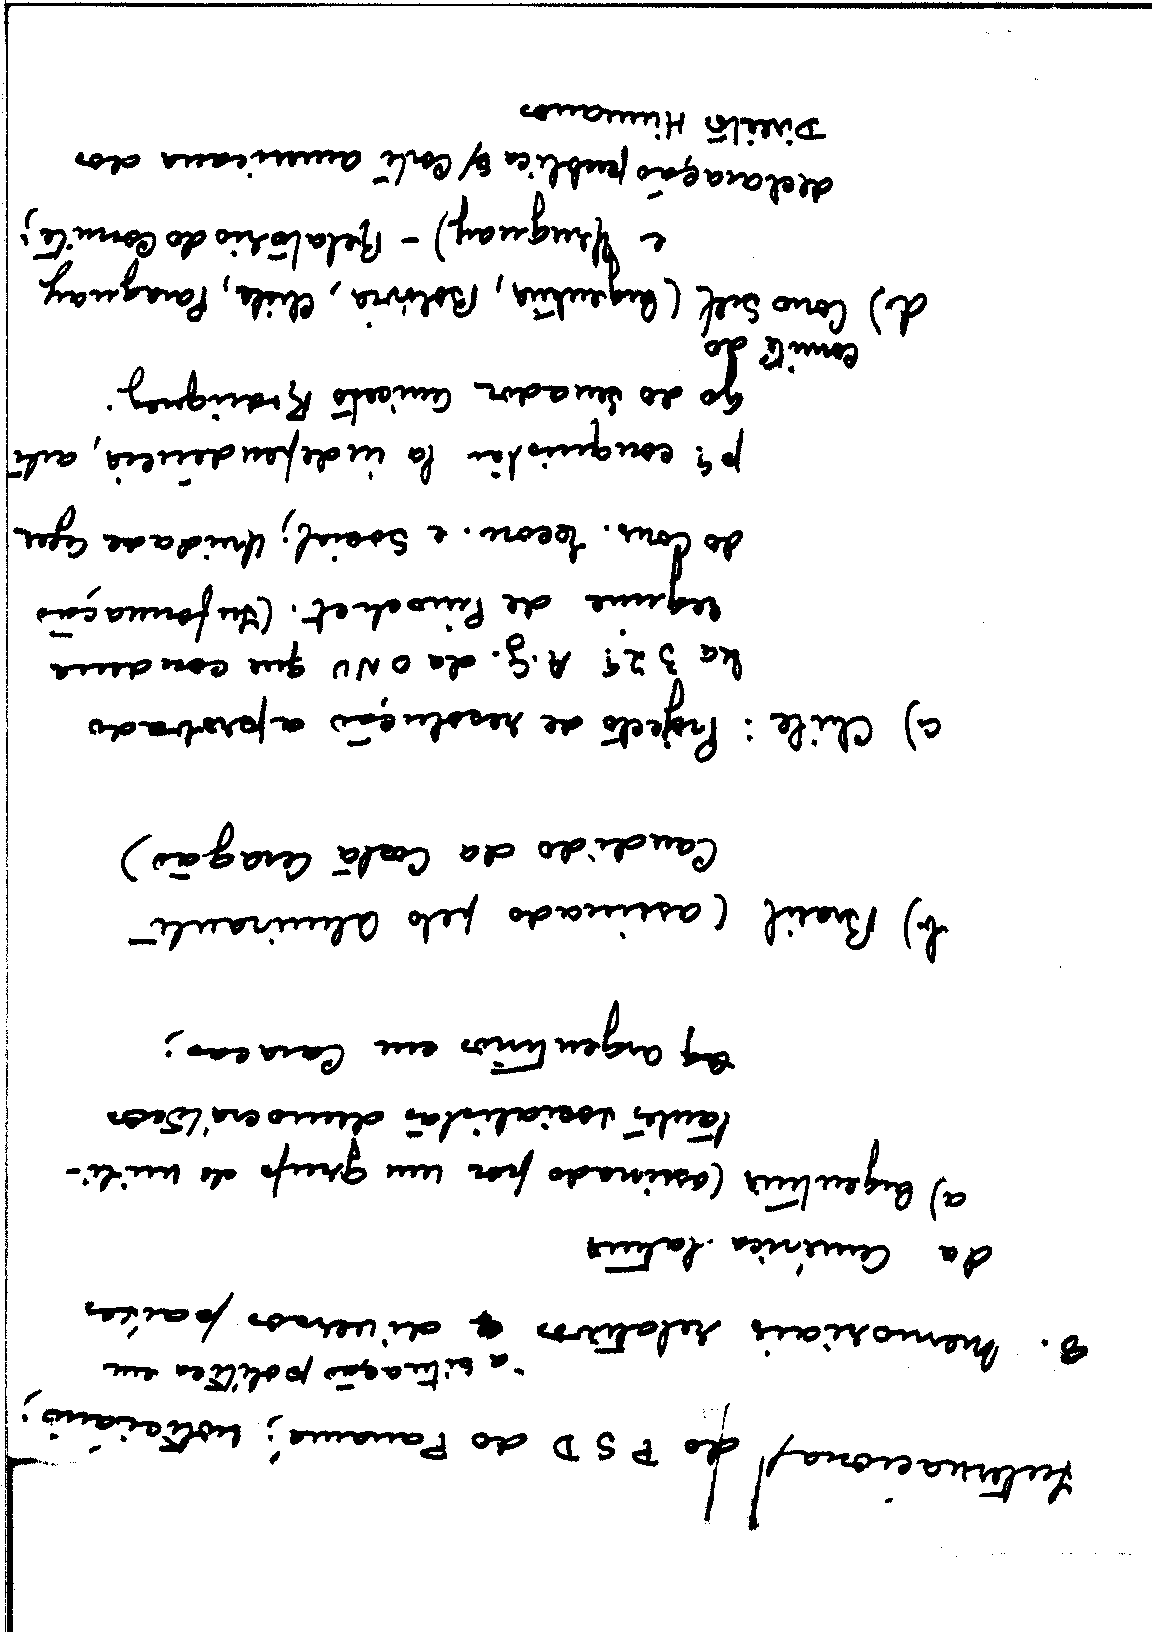 Internacional / do PSD do Panamá; noticiário;
a situação política em
8. Memoriais relativos diversos países
da América Latina
a) Argentina (assinado por um grupo de mili-
tantes socialistas democráticos
argentinos em Caracas;
b) Brasil (assinado pelo Almirante
Candido da Costa Aragão)
c) Chile: Projecto de resolução aprovado
na 32ª A.G. da ONU que condena
regime de Pinochet. (Informação
do Cons. Econ. e Social; Unidade
pª conquistar la independência, arti
go do senador Aniceto Rodriguez.
Comitê do
d) Cono Sul (Argentina, Bolivia, Chile, Paraguay
e Uruguay) - Relatório do Comitê;
declaração publica s/ Corte Americana dos
Direitos Humanos